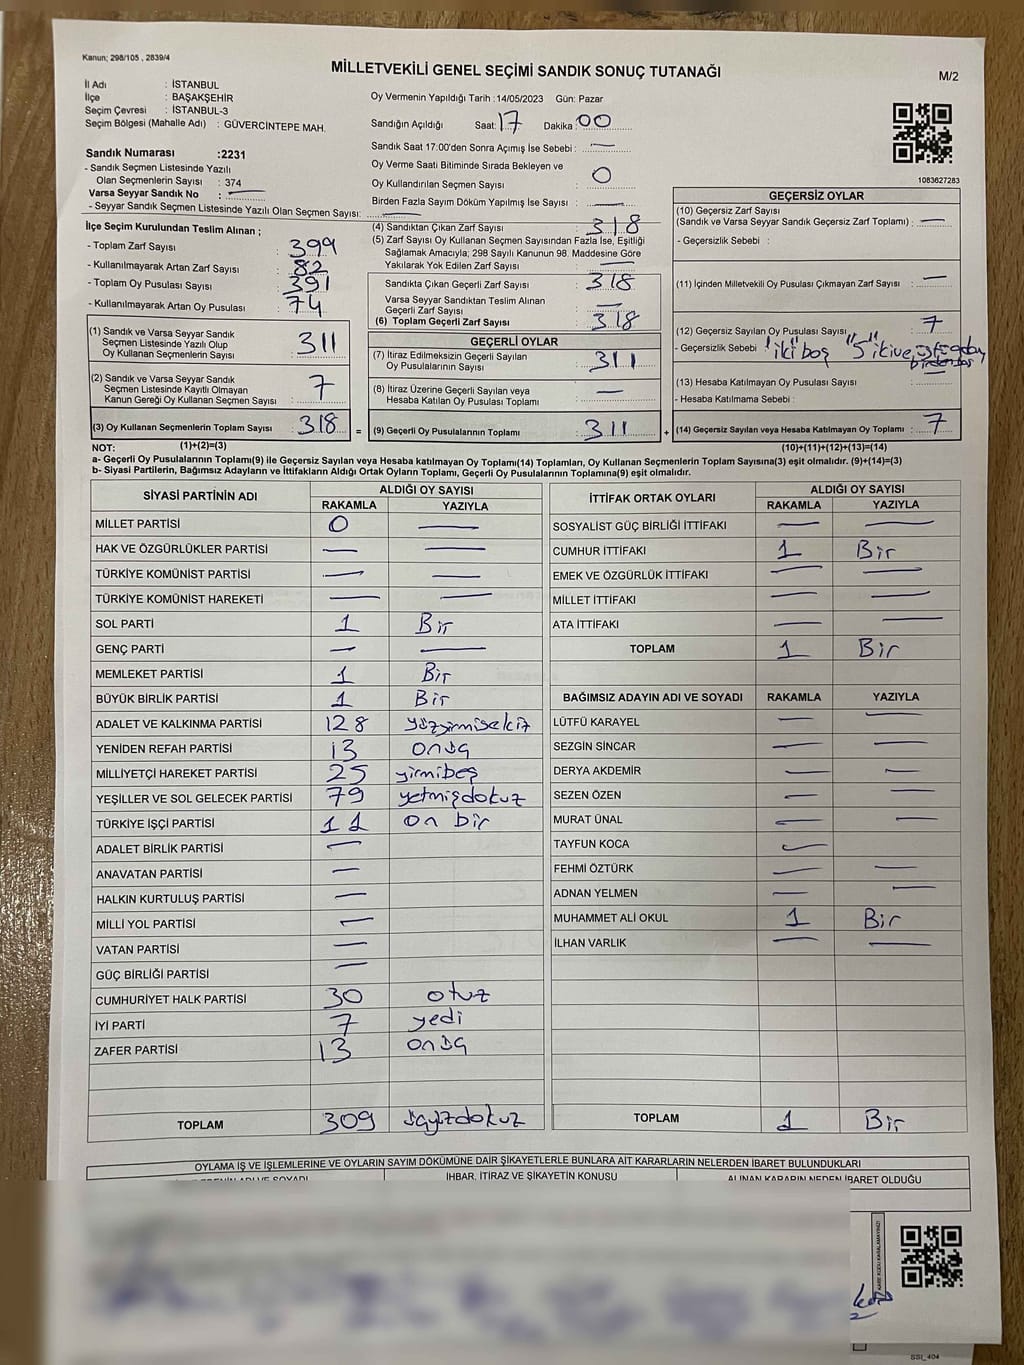 Kanun; 298/105 , 2839/4
MİLLETVEKİLİ GENEL SEÇİMİ SANDIK SONUÇ TUTANAĞI
M/2
İl Adı : İSTANBUL
İlçe : BAŞAKŞEHİR
Seçim Çevresi : İSTANBUL-3
Seçim Bölgesi (Mahalle Adı) : GÜVERCİNTEPE MAH.
Sandık Numarası :2231
- Sandık Seçmen Listesinde Yazılı
Olan Seçmenlerin Sayısı : 374
Varsa Seyyar Sandık No : —
- Seyyar Sandık Seçmen Listesinde Yazılı Olan Seçmen Sayısı: —
Oy Vermenin Yapıldığı Tarih :14/05/2023 Gün: Pazar
Sandığın Açıldığı Saat: 17 Dakika: 00
Sandık Saat 17:00'den Sonra Açımış İse Sebebi : —
Oy Verme Saati Bitiminde Sırada Bekleyen ve
Oy Kullandırılan Seçmen Sayısı : 0
Birden Fazla Sayım Döküm Yapılmış İse Sayısı : —
1083627283
İlçe Seçim Kurulundan Teslim Alınan ;
- Toplam Zarf Sayısı : 399
- Kullanılmayarak Artan Zarf Sayısı : 82
- Toplam Oy Pusulası Sayısı : 391
- Kullanılmayarak Artan Oy Pusulası : 74
(1) Sandık ve Varsa Seyyar Sandık
Seçmen Listesinde Yazılı Olup
Oy Kullanan Seçmenlerin Sayısı : 311
(2) Sandık ve Varsa Seyyar Sandık
Seçmen Listesinde Kayıtlı Olmayan
Kanun Gereği Oy Kullanan Seçmen Sayısı : 7
(3) Oy Kullanan Seçmenlerin Toplam Sayısı : 318 =
(4) Sandıktan Çıkan Zarf Sayısı : 318
(5) Zarf Sayısı Oy Kullanan Seçmen Sayısından Fazla İse, Eşitliği
Sağlamak Amacıyla; 298 Sayılı Kanunun 98. Maddesine Göre
Yakılarak Yok Edilen Zarf Sayısı : —
Sandıkta Çıkan Geçerli Zarf Sayısı : 318
Varsa Seyyar Sandıktan Teslim Alınan
Geçerli Zarf Sayısı : —
(6) Toplam Geçerli Zarf Sayısı : 318
GEÇERLİ OYLAR
(7) İtiraz Edilmeksizin Geçerli Sayılan
Oy Pusulalarının Sayısı : 311
(8) İtiraz Üzerine Geçerli Sayılan veya
Hesaba Katılan Oy Pusulası Toplamı : —
(9) Geçerli Oy Pusulalarının Toplamı : 311 +
GEÇERSİZ OYLAR
(10) Geçersiz Zarf Sayısı
(Sandık ve Varsa Seyyar Sandık Geçersiz Zarf Toplamı) : —
- Geçersizlik Sebebi :
(11) İçinden Milletvekili Oy Pusulası Çıkmayan Zarf Sayısı : —
(12) Geçersiz Sayılan Oy Pusulası Sayısı : 7
- Geçersizlik Sebebi : "iki" boş "5" ikive
(13) Hesaba Katılmayan Oy Pusulası Sayısı : —
- Hesaba Katılmama Sebebi :
(14) Geçersiz Sayılan veya Hesaba Katılmayan Oy Toplamı : 7
NOT: (1)+(2)=(3) (10)+(11)+(12)+(13)=(14)
a- Geçerli Oy Pusulalarının Toplamı(9) ile Geçersiz Sayılan veya Hesaba katılmayan Oy Toplamı(14) Toplamları, Oy Kullanan Seçmenlerin Toplam Sayısına(3) eşit olmalıdır. (9)+(14)=(3)
b- Siyasi Partilerin, Bağımsız Adayların ve İttifakların Aldığı Ortak Oyların Toplamı, Geçerli Oy Pusulalarının Toplamına(9) eşit olmalıdır.
SİYASİ PARTİNİN ADI ALDIĞI OY SAYISI
RAKAMLA YAZIYLA
MİLLET PARTİSİ 0 —
HAK VE ÖZGÜRLÜKLER PARTİSİ — —
TÜRKİYE KOMÜNİST PARTİSİ — —
TÜRKİYE KOMÜNİST HAREKETİ — —
SOL PARTİ 1 Bir
GENÇ PARTİ — —
MEMLEKET PARTİSİ 1 Bir
BÜYÜK BİRLİK PARTİSİ 1 Bir
ADALET VE KALKINMA PARTİSİ 128 yüzyirmisekiz
YENİDEN REFAH PARTİSİ 13 onüç
MİLLİYETÇİ HAREKET PARTİSİ 25 yirmibeş
YEŞİLLER VE SOL GELECEK PARTİSİ 79 yetmişdokuz
TÜRKİYE İŞÇİ PARTİSİ 11 on bir
ADALET BİRLİK PARTİSİ —
ANAVATAN PARTİSİ —
HALKIN KURTULUŞ PARTİSİ —
MİLLİ YOL PARTİSİ —
VATAN PARTİSİ —
GÜÇ BİRLİĞİ PARTİSİ —
CUMHURİYET HALK PARTİSİ 30 otuz
İYİ PARTİ 7 yedi
ZAFER PARTİSİ 13 onüç
TOPLAM 309 üçyüzdokuz
İTTİFAK ORTAK OYLARI ALDIĞI OY SAYISI
RAKAMLA YAZIYLA
SOSYALİST GÜÇ BİRLİĞİ İTTİFAKI — —
CUMHUR İTTİFAKI 1 Bir
EMEK VE ÖZGÜRLÜK İTTİFAKI — —
MİLLET İTTİFAKI — —
ATA İTTİFAKI — —
TOPLAM 1 Bir
BAĞIMSIZ ADAYIN ADI VE SOYADI RAKAMLA YAZIYLA
LÜTFÜ KARAYEL — —
SEZGİN SİNCAR — —
DERYA AKDEMİR — —
SEZEN ÖZEN — —
MURAT ÜNAL — —
TAYFUN KOCA —
FEHMİ ÖZTÜRK — —
ADNAN YELMEN — —
MUHAMMET ALİ OKUL 1 Bir
İLHAN VARLIK — —
TOPLAM 1 Bir
OYLAMA İŞ VE İŞLEMLERİNE VE OYLARIN SAYIM DÖKÜMÜNE DAİR ŞİKAYETLERLE BUNLARA AİT KARARLARIN NELERDEN İBARET BULUNDUKLARI
İHBAR, İTİRAZ VE ŞİKAYETİN KONUSU
ALINAN KARARIN NEDEN İBARET OLDUĞU
KARE KODU KARALAMAYINIZ!
SSI_404